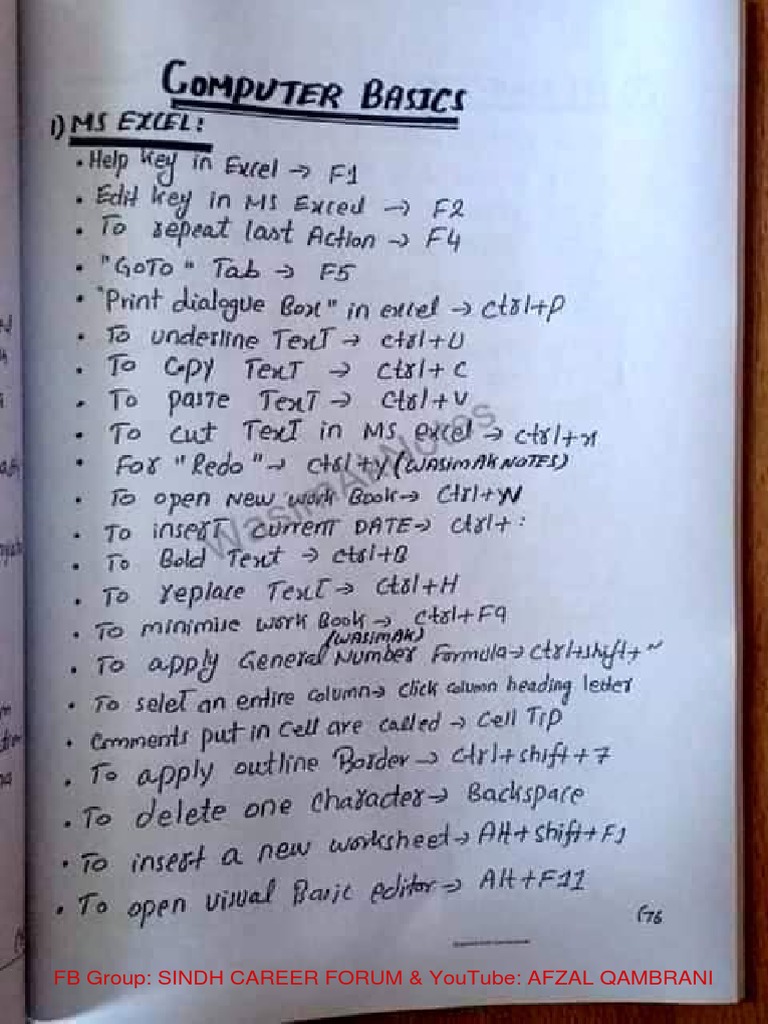 COMPUTER BASICS
1) MS EXCEL:
• Help key in Excel → F1
• Edit key in MS Excel → F2
• To repeat last Action → F4
• "GOTO" Tab → F5
• "Print dialogue Box" in excel → ctrl+p
• To underline Text → ctrl+U
• To Copy Text → ctrl+C
• To paste Text → ctrl+V
• To cut Text in MS excel → ctrl+x
• For "Redo" → ctrl+y (WASIMAK NOTES)
• To open New work Book → Ctrl+N
• To insert current DATE → ctrl+:
• To Bold Text → ctrl+B
• To replace Text → ctrl+H
• To minimise work Book → ctrl+F9
(WASIMAK)
• To apply General Number Formula → ctrl+shift+~
• To selet an entire column → click column heading letter
• comments put in cell are called → cell Tip
• To apply outline Border → ctrl+shift+7
• To delete one character → Backspace
• To insert a new worksheet → Alt+shift+F1
• To open visual Basic editor → Alt+F11
WasimAkNotes
FB Group: SINDH CAREER FORUM & YouTube: AFZAL QAMBRANI